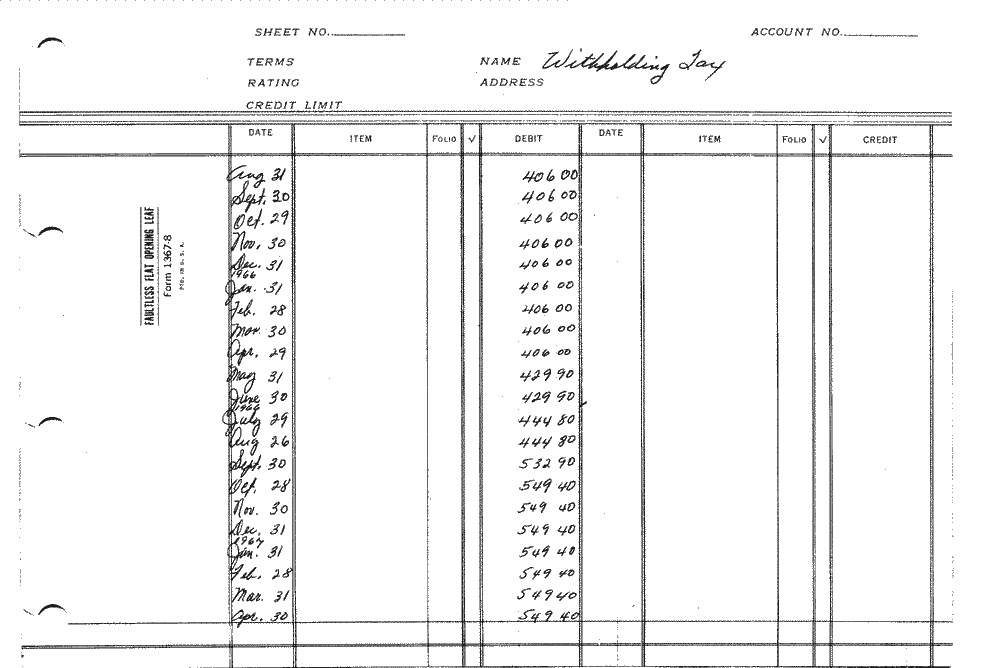 SHEET NO.
ACCOUNT NO.
TERMS
NAME Withholding Tax
RATING
ADDRESS
CREDIT LIMIT
DATE ITEM FOLIO √ DEBIT DATE ITEM FOLIO √ CREDIT
FAULTLESS FLAT OPENING LEAF
Form 1367-8
MD. IN U. S. A.
Aug 31 406 00
Sept. 30 406 00
Oct. 29 406 00
Nov. 30 406 00
Dec. 31 406 00
1966
Jan. 31 406 00
Feb. 28 406 00
Mar. 30 406 00
Apr. 29 406 00
May 31 429 90
June 30 429 90
1966
July 29 444 80
Aug 26 444 80
Sept. 30 532 90
Oct. 28 549 40
Nov. 30 549 40
Dec. 31 549 40
1967
Jan. 31 549 40
Feb. 28 549 40
Mar. 31 549 40
Apr. 30 549 40